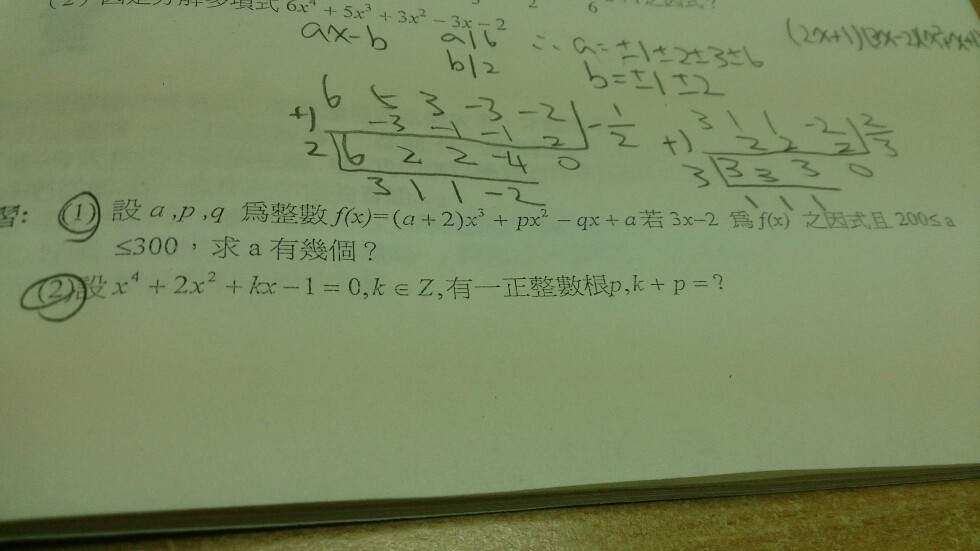 6x⁴ + 5x³ + 3x² - 3x - 2
ax-b a|6 ∴ a=±1±2±3±6
b|2 b=±1±2
6 5 3 -3 -2 | -1/2
+) -3 -1 -1 2
2 | 6 2 2 -4 0
3 1 1 -2
3 1 1 -2 | 2/3
+) 2 2 2
3 | 3 3 3 0
1 1 1
習: (1) 設 a ,p ,q 為整數 f(x)=(a+2)x³ + px² - qx + a 若 3x-2 為 f(x) 之因式且 200≤a
≤300，求 a 有幾個？
(2) 設 x⁴ + 2x² + kx - 1 = 0, k ∈ Z, 有一正整數根p, k + p = ?